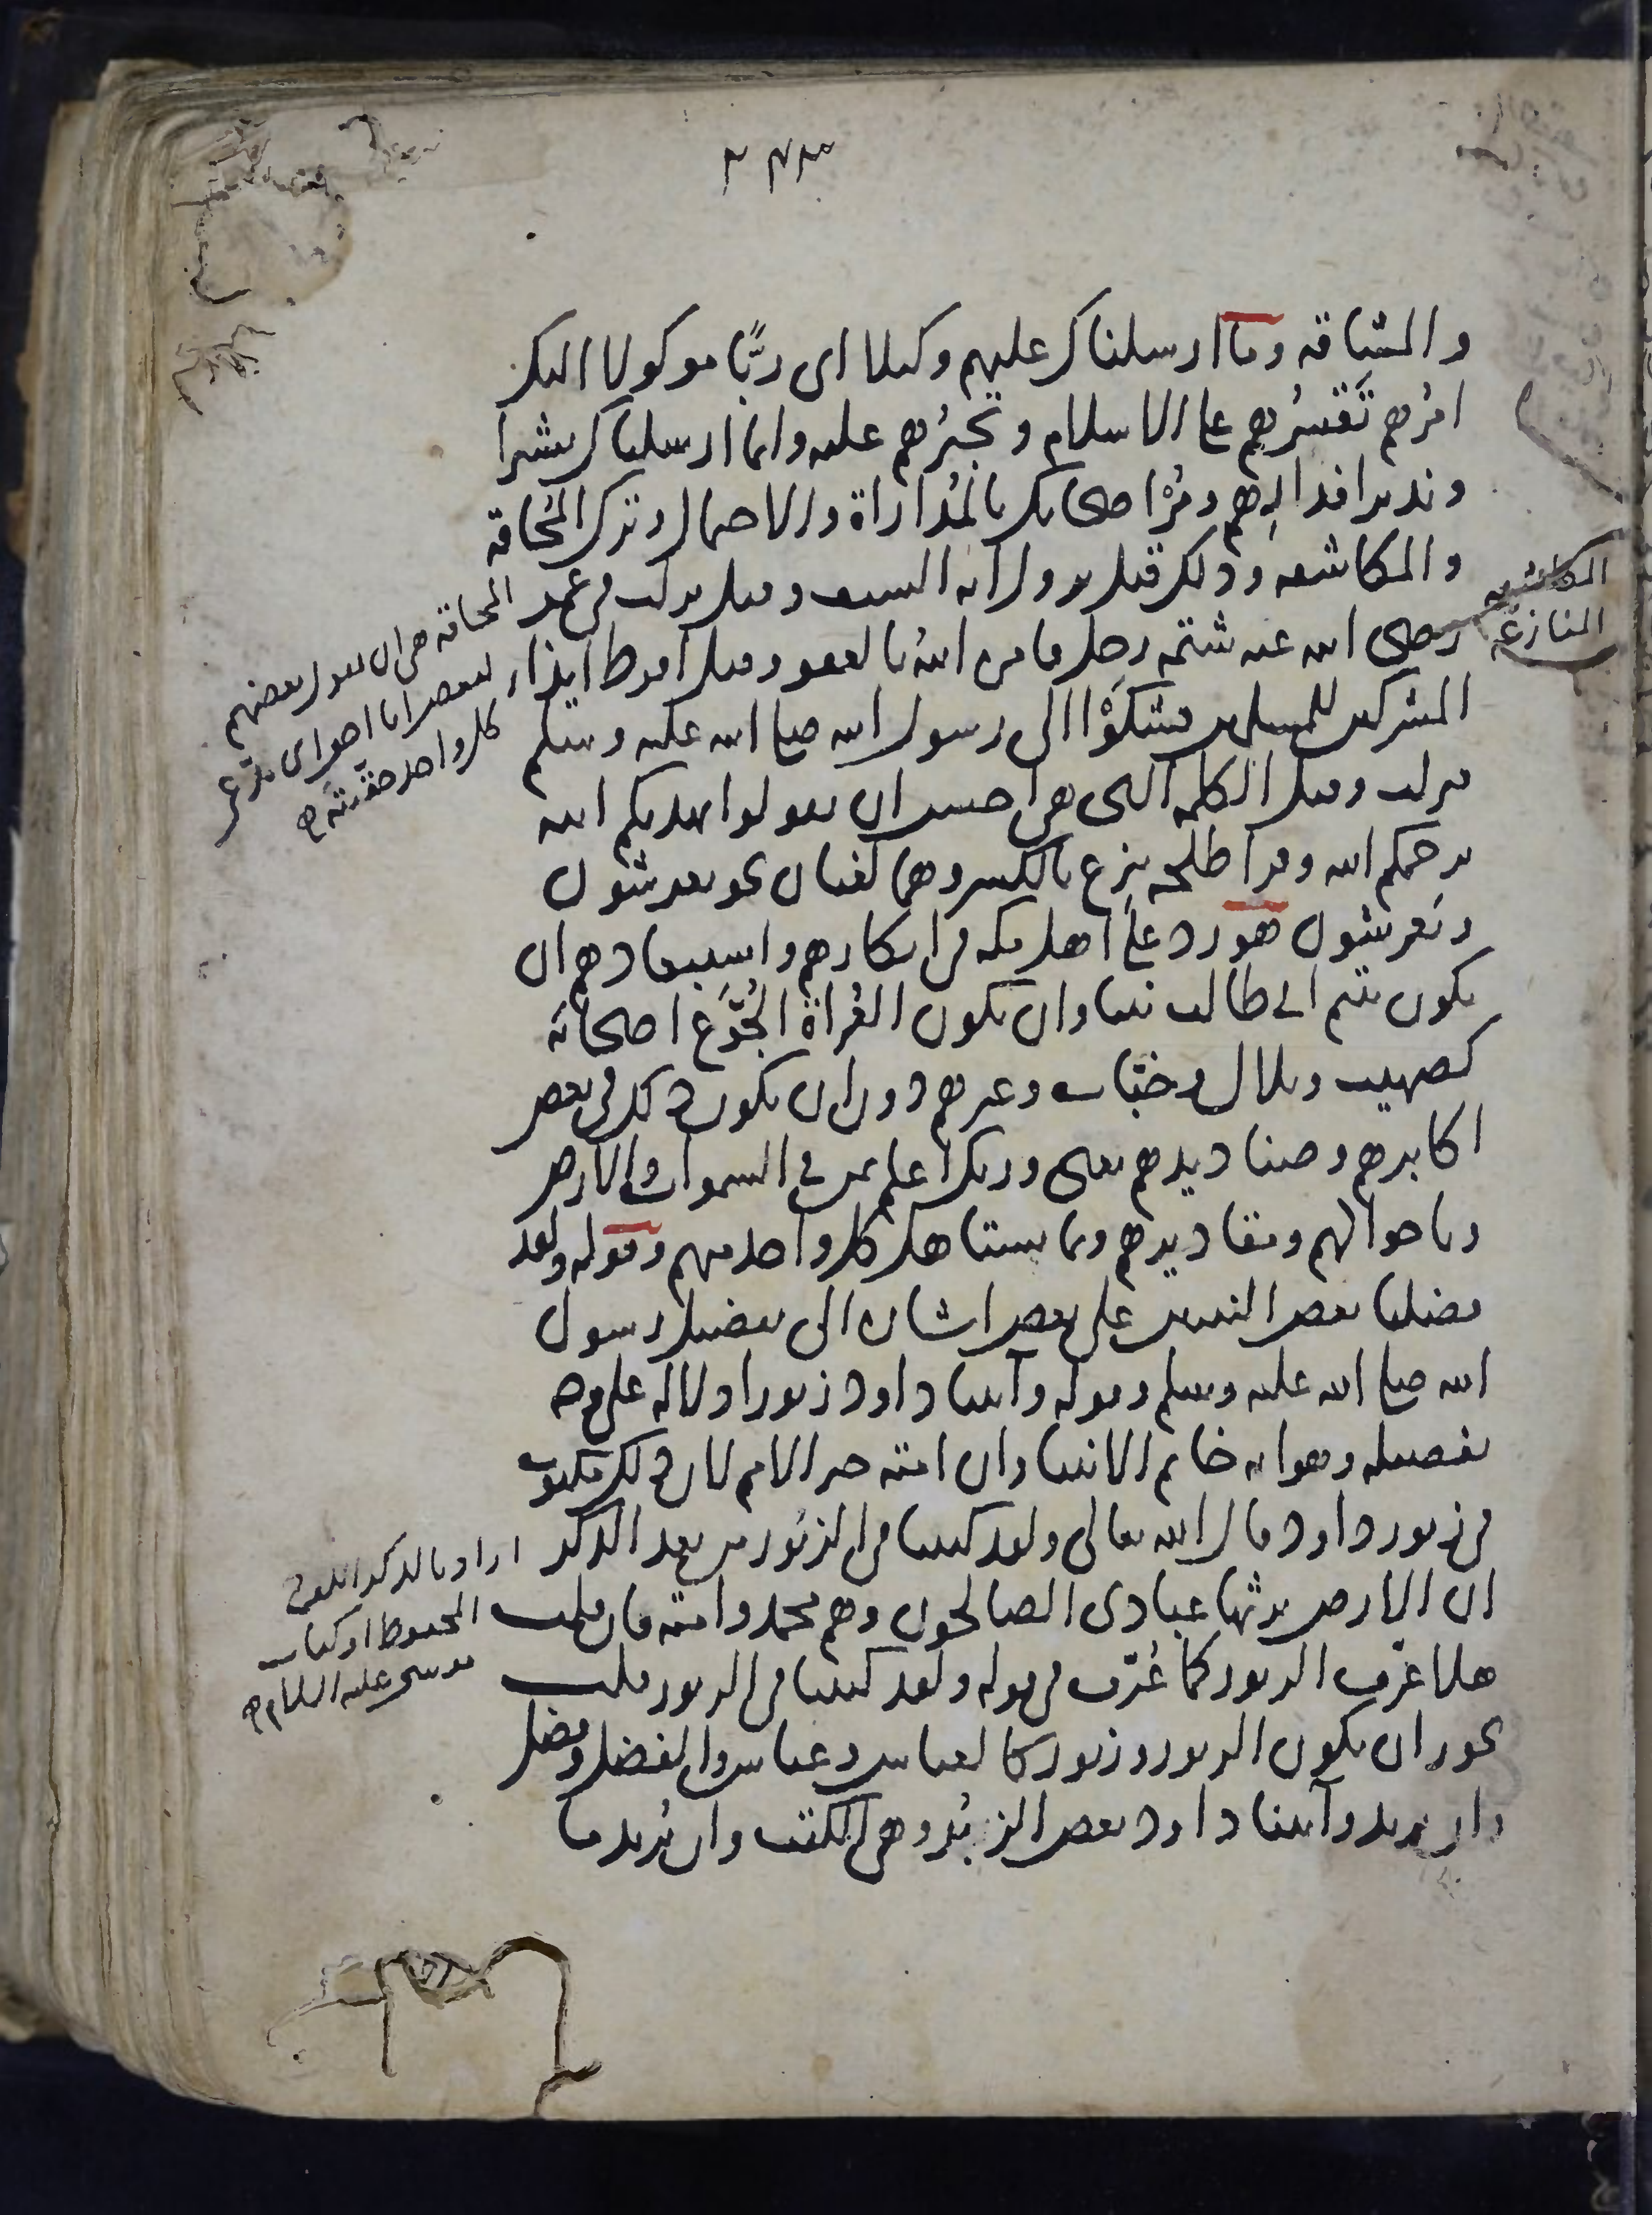 ٢٤٣
والمشاقه وما ارسلناك عليهم وكيلا اى ربًّا موكولا اليك
امرُهم تَقسُرُهم على الاسلام وتجبرُهم عليه وانما ارسلناك بشيرا
ونذيرا فدارِهم ومُرْ اصحابك بالمُداراة والاحتمال وترك المُحاقه
والمكاشفه وذلك قبل نزول آية السيف وقيل نزلت فى عمر
رضى الله عنه شتمه رجل فامره الله بالعفو وقيل افرط ايذاء
المشركين للمسلمين فشكَوْا الى رسول الله صلى الله عليه وسلم
فنزلت وقيل الكلمه التى هى احسن ان يقولوا يهديكم الله
يرحمكم الله وقرأ طلحه ينزِع بالكسر وهما لغتان نحو يعرِشون
ويَعرُشون هو رد على اهل مكه فى انكارهم واستبعادهم ان
يكون يتيم ابى طالب نبيا وان تكون العُراة الجُوَّع اصحابَه
كصهيب وبلال وخبّاب وغيرهم دون ان يكون ذلك فى بعض
اكابرهم وصناديدهم يعنى وربك اعلم بمن فى السموات والارض
وباحوالهم ومقاديرهم وبما يستاهل كل واحد منهم وقوله ولقد
فضلنا بعض النبيين على بعض اشاره الى تفضيل رسول
الله صلى الله عليه وسلم وقوله وآتينا داود زبورا دلاله على وجه
تفضيله وهو انه خاتم الانبيا وان امته خير الامم لان ذلك مكتوب
فى زبور داود قال الله تعالى ولقد كتبنا فى الزبور من بعد الذكر
ان الارض يرثها عبادى الصالحون وهم محمد وامته فان قلت
هلا عُرِّف الزبور كما عُرّف فى قوله ولقد كتبنا فى الزبور قلت
يجوز ان يكون الزبور وزبور كالعباس وعباس والفضل وفضل
وان يريد وآتينا داود بعض الزُبُر وهى الكتب وان يُريد ما
المكاشفه
المنازعه
المحاقه هى ان يقول بعضهم
لبعض انا احق اى يدّعى
كل واحد حقيّته
اراد بالذكر اللوح
المحفوظ او كتاب
موسى عليه السلام